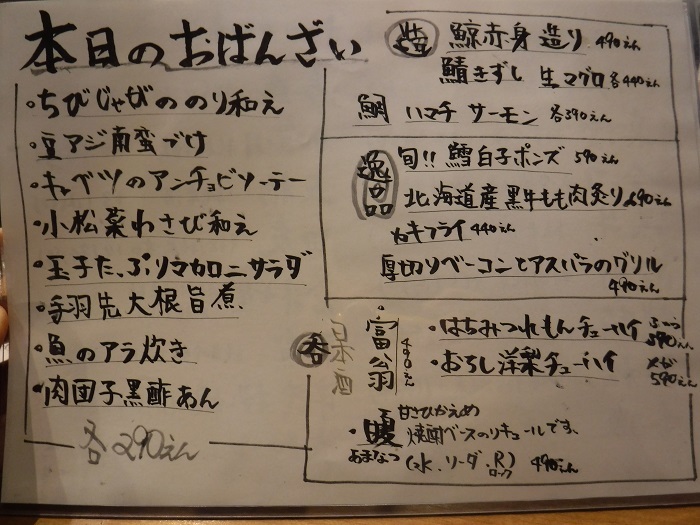 本日のおばんざい
・ちびじゃがののり和え
・豆アジ南蛮づけ
・キャベツのアンチョビソーテー
・小松菜わさび和え
・玉子たっぷりマカロニサラダ
・手羽先大根旨煮
・魚のアラ炊き
・肉団子黒酢あん
各290えん
造 鯨赤身造り 490えん
鯖きずし 生マグロ 各440えん
鯛 ハマチ サーモン 各390えん
逸品 旬!! 鱈白子ポンズ 590えん
北海道産黒牛もも肉炙り 690えん
カキフライ 440えん
厚切りベーコンとアスパラのグリル
490えん
呑 日本酒 富翁 490え
・はちみつれもんチューハイ 590えん
・おろし洋梨チューハイ メガ
590えん
・暖 甘さひかえめ
焼酎ベースのリキュールです、
あまなつ (水、ソーダ、R) 490えん
ロック